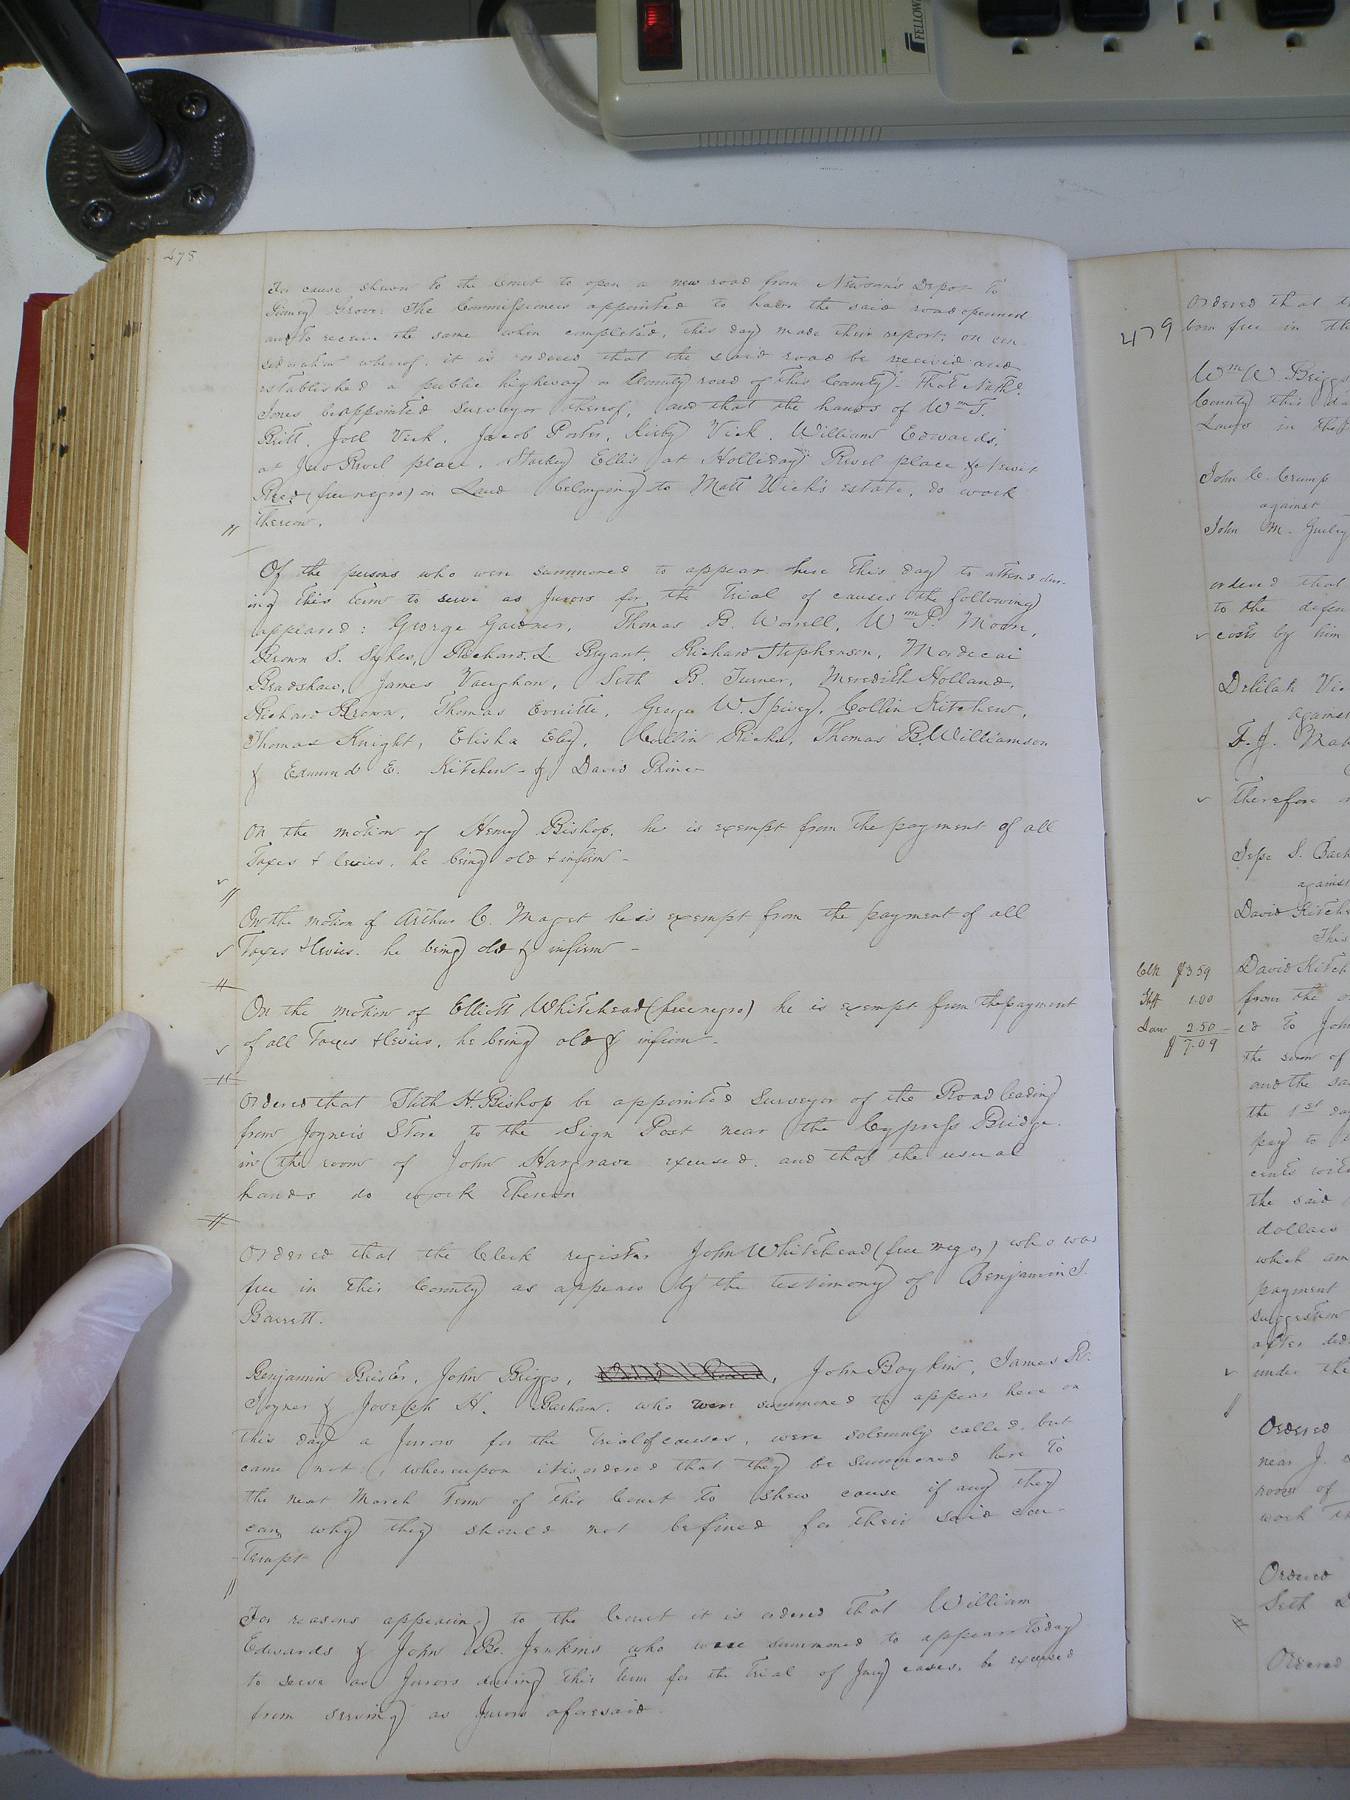 478
For cause shewn to the Court to open a new road from Newsom's Depot to
Piney Grove. The Commissioners appointed to have the said road openned
and to receive the same when completed, this day made their report; on con-
sideration whereof, it is ordered that the said road be received and
established a public highway or County road of this County - that Nathl.
Jones be appointed surveyor thereof, and that the hands of Wm T.
Britt, Joel Vick, Jacob Porter, Kirby Vick, Williams Edwards,
at Jno Rivel place, Starkey Ellis at Holliday Rivel place &
Reed (free negro) on Land belonging to Matt Vick's estate, do work
thereon.
Of the persons who were summoned to appear here this day to attend dur-
ing this term to serve as Jurors for the trial of causes the following
appeared: George Gardner, Thomas B. Worrell, Wm P. Moore,
Brown S. Sykes, Richard L. Bryant, Richard Stephenson, Mordecai
Bradshaw, James Vaughan, Seth B. Turner, Meredith Holland,
Richard Brown, Thomas Everitte, George W. Spivey, Collin Kitchen,
Thomas Knight, Elisha Eley, Collin Ricks, Thomas B. Williamson
& Edmund E. Kitchen - & David Prince
On the motion of Henry Bishop, he is exempt from the payment of all
Taxes & levies, he being old & infirm -
On the motion of Arthur C. Maget he is exempt from the payment of all
Taxes & levies, he being old & infirm -
On the motion of Elliott Whitehead (free negro) he is exempt from the payment
of all Taxes & levies, he being old & infirm -
Ordered that Seth H. Bishop be appointed Surveyor of the Road leading
from Joyner's Store to the Sign Post near the Cypress Bridge
in the room of John Hargrave excused, and that the usual
hands do work thereon
Ordered that the Clerk register John Whitehead (free negro) who was
free in this County as appears by the testimony of Benjamin J.
Barrett.
Benjamin Brister, John Briggs, John Boykin, James R.
Joyner & Joseph H. Barham, who were summoned to appear here on
this day a Jurors for the trial of causes, were solemnly called, but
came not, whereupon it is ordered that they be summoned here to
the next March Term of this Court to shew cause if any they
can, why they should not be fined for their said con-
tempt
For reasons appearing to the Court it is ordered that William
Edwards & John B. Jenkins who were summoned to appear today
to serve as Jurors during this term for the trial of Jury cases, be excused
from serving as Jurors aforesaid.
479
Ordered that
born free in the
Wm W Briggs
County this da
Laws in the
John C. Crump
against
John M. Gurley
ordered that
to the defen
costs by him
Delilah Vi
against
F. J. Mah
Therefore
Jesse S. Bar
against
David Kitch
This
Clk $3.59 David Kitch
Shff 1.00 from the
Law 2.50 ed to John
$7.09
the sum of
and the sa
the 1st day
pay to
cents with
the said
dollars
which am
payment
suggestion
after ded
under the
Ordered
near J.
room of
work th
Ordered
Seth
Ordered